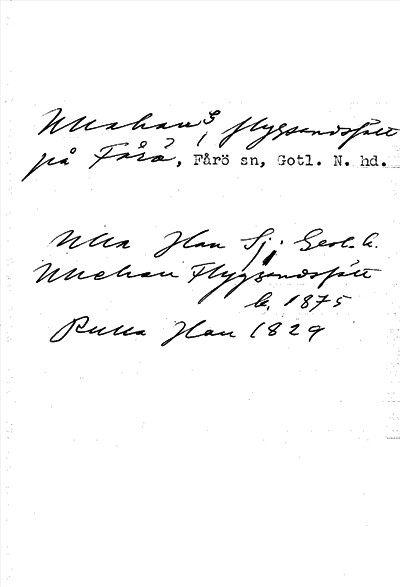 Ullahaus, flygsandsfält
på Fårö, Fårö sn, Gotl. N. hd.
Ulla Hau Sj. Geol. k.
Ullahau Flygsandsfält
k. 1875
Rulla Hau 1829